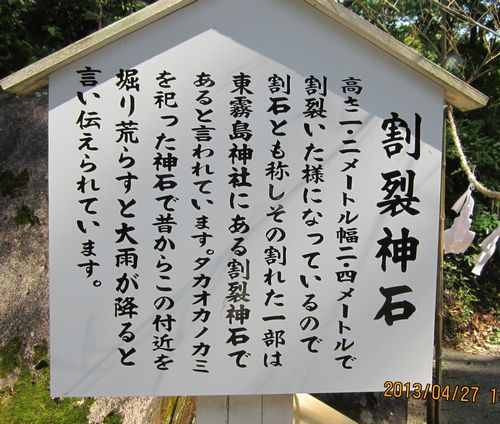 割裂神石
高さ一・二メートル幅二・四メートルで
割裂いた様になっているので
割石とも称しその割れた一部は
東霧島神社にある割裂神石で
あると言われています。タカオカノカミ
を祀った神石で昔からこの付近を
堀り荒らすと大雨が降ると
言い伝えられています。
2013/04/27 1